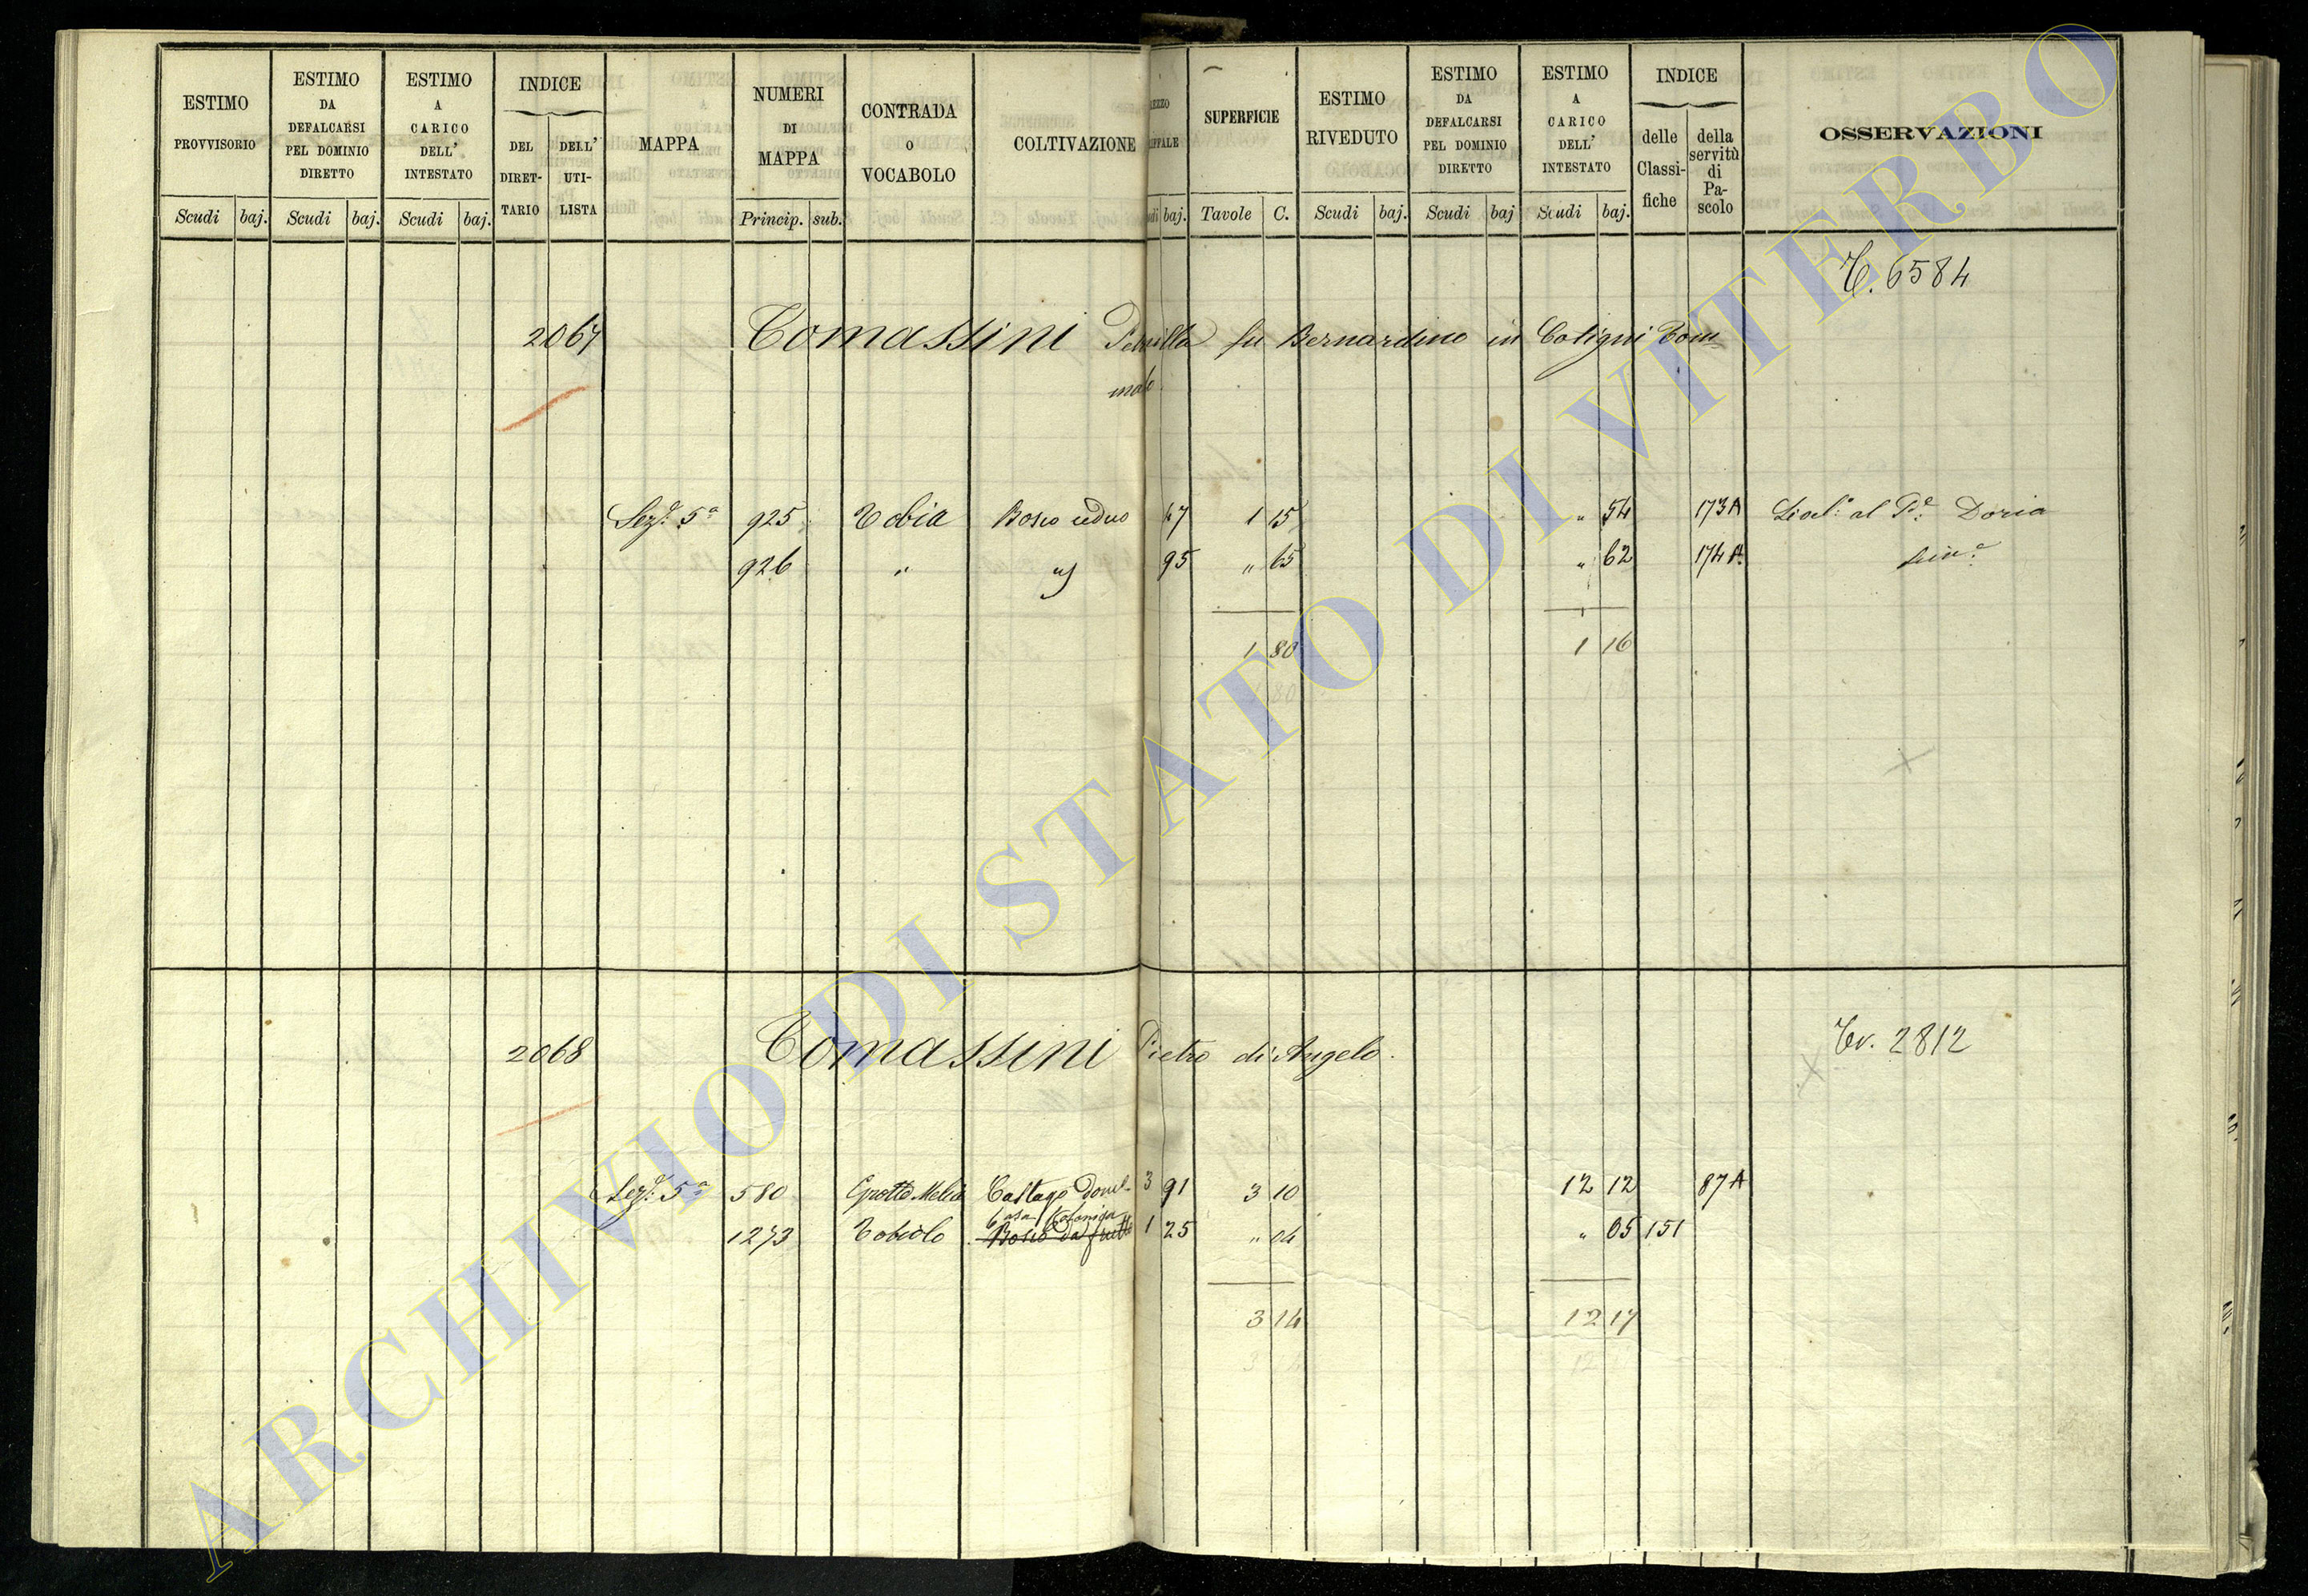 ESTIMO PROVVISORIO
Scudi baj.
ESTIMO DA DEFALCARSI PEL DOMINIO DIRETTO
Scudi baj.
ESTIMO A CARICO DELL' INTESTATO
Scudi baj.
INDICE
DEL DIRET-TARIO
DELL' UTI-LISTA
MAPPA
NUMERI DI MAPPA
Princip. sub.
CONTRADA O VOCABOLO
COLTIVAZIONE
baj.
SUPERFICIE
Tavole C.
ESTIMO RIVEDUTO
Scudi baj.
ESTIMO DA DEFALCARSI PEL DOMINIO DIRETTO
Scudi baj
ESTIMO A CARICO DELL' INTESTATO
Scudi baj.
INDICE
delle Classi-fiche
della servitù di Pa-scolo
OSSERVAZIONI
6584
2067 Tomassini fu Bernardino in
Sez.e 5a 925 Tobia Bosco ceduo 47 1 15 " 54 173A al Doria
926 " " 95 " 65 " 62 174A
1 80 1 16
2068 Tomassini Pietro di Angelo. 2812
Sez.e 5a 580 3 91 3 10 12 12 87A
Casa
1273 Bosco da frutto 1 25 " 04 " 05 151
3 14 12 17
ARCHIVIO DI STATO DI VITERBO